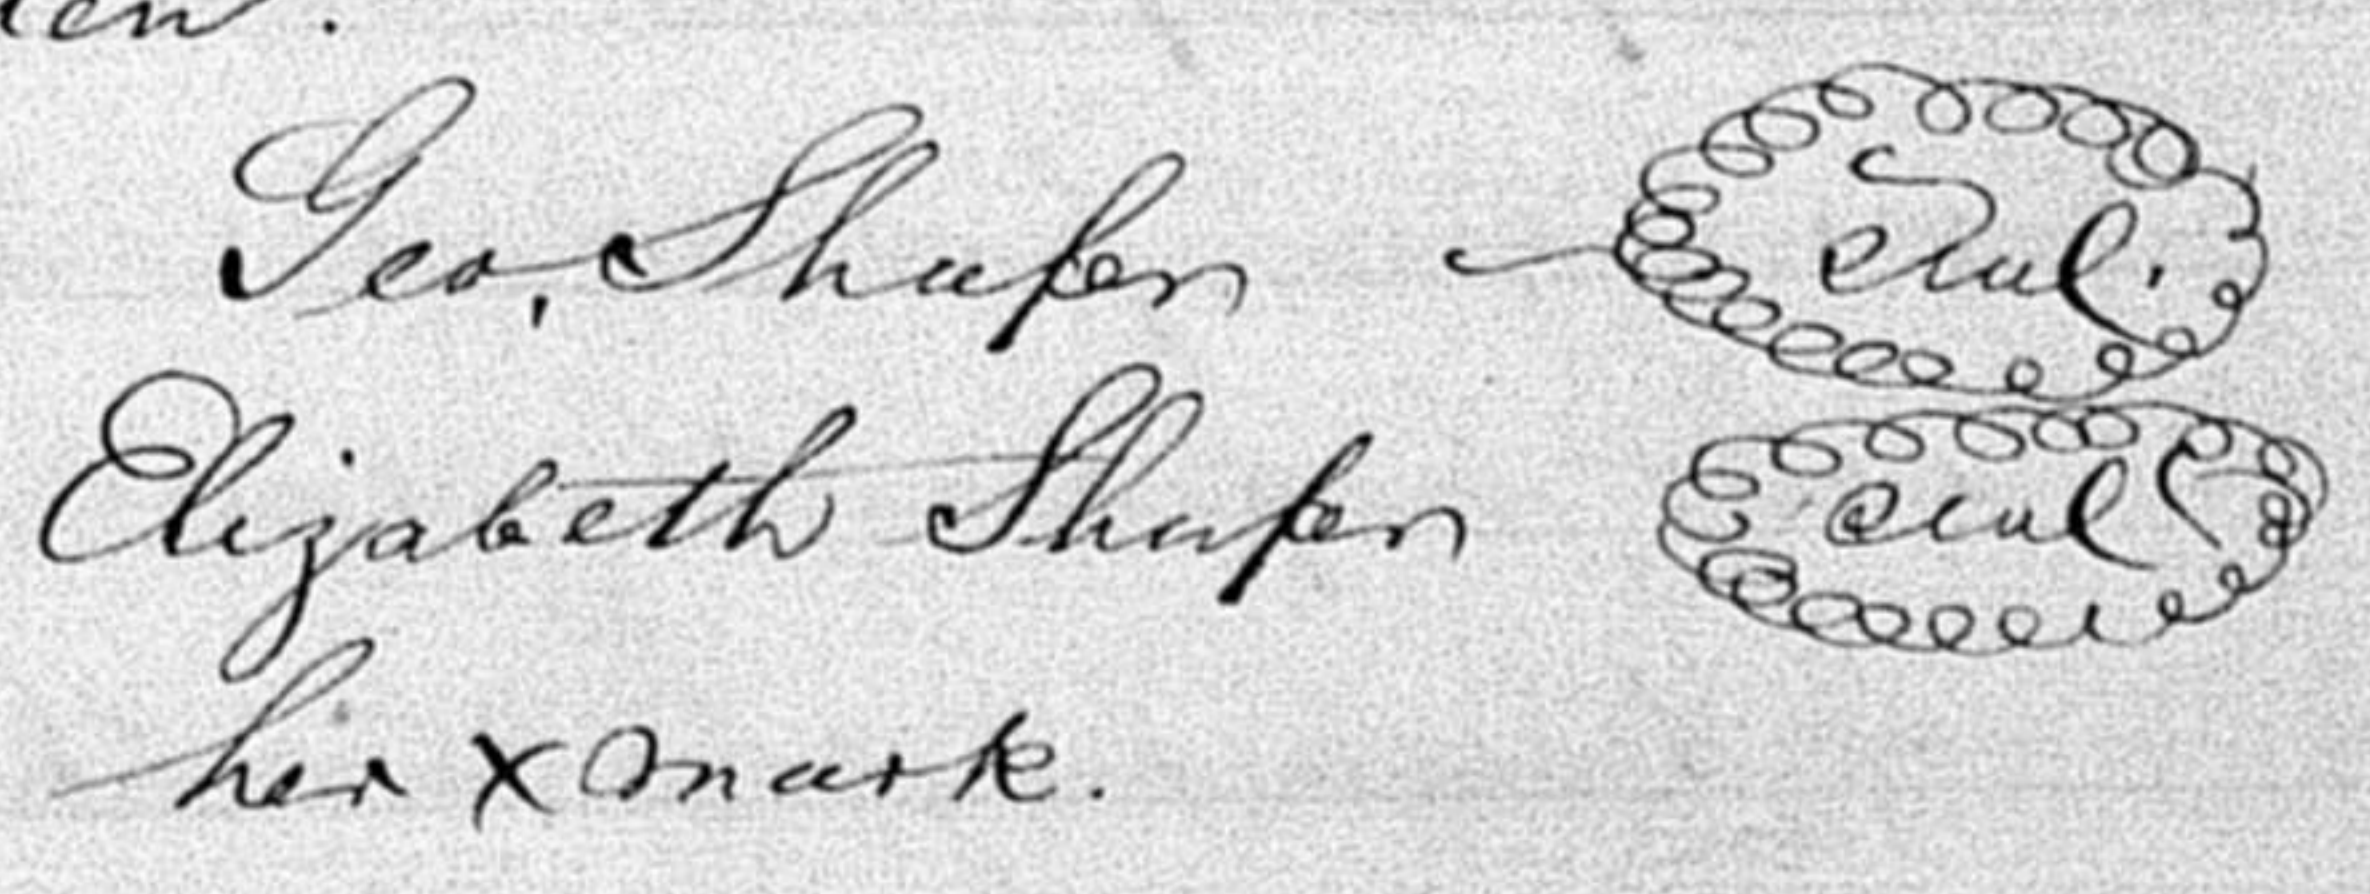 Geo, Shafer Seal.
Elizabeth Shafer Seal
her X mark.